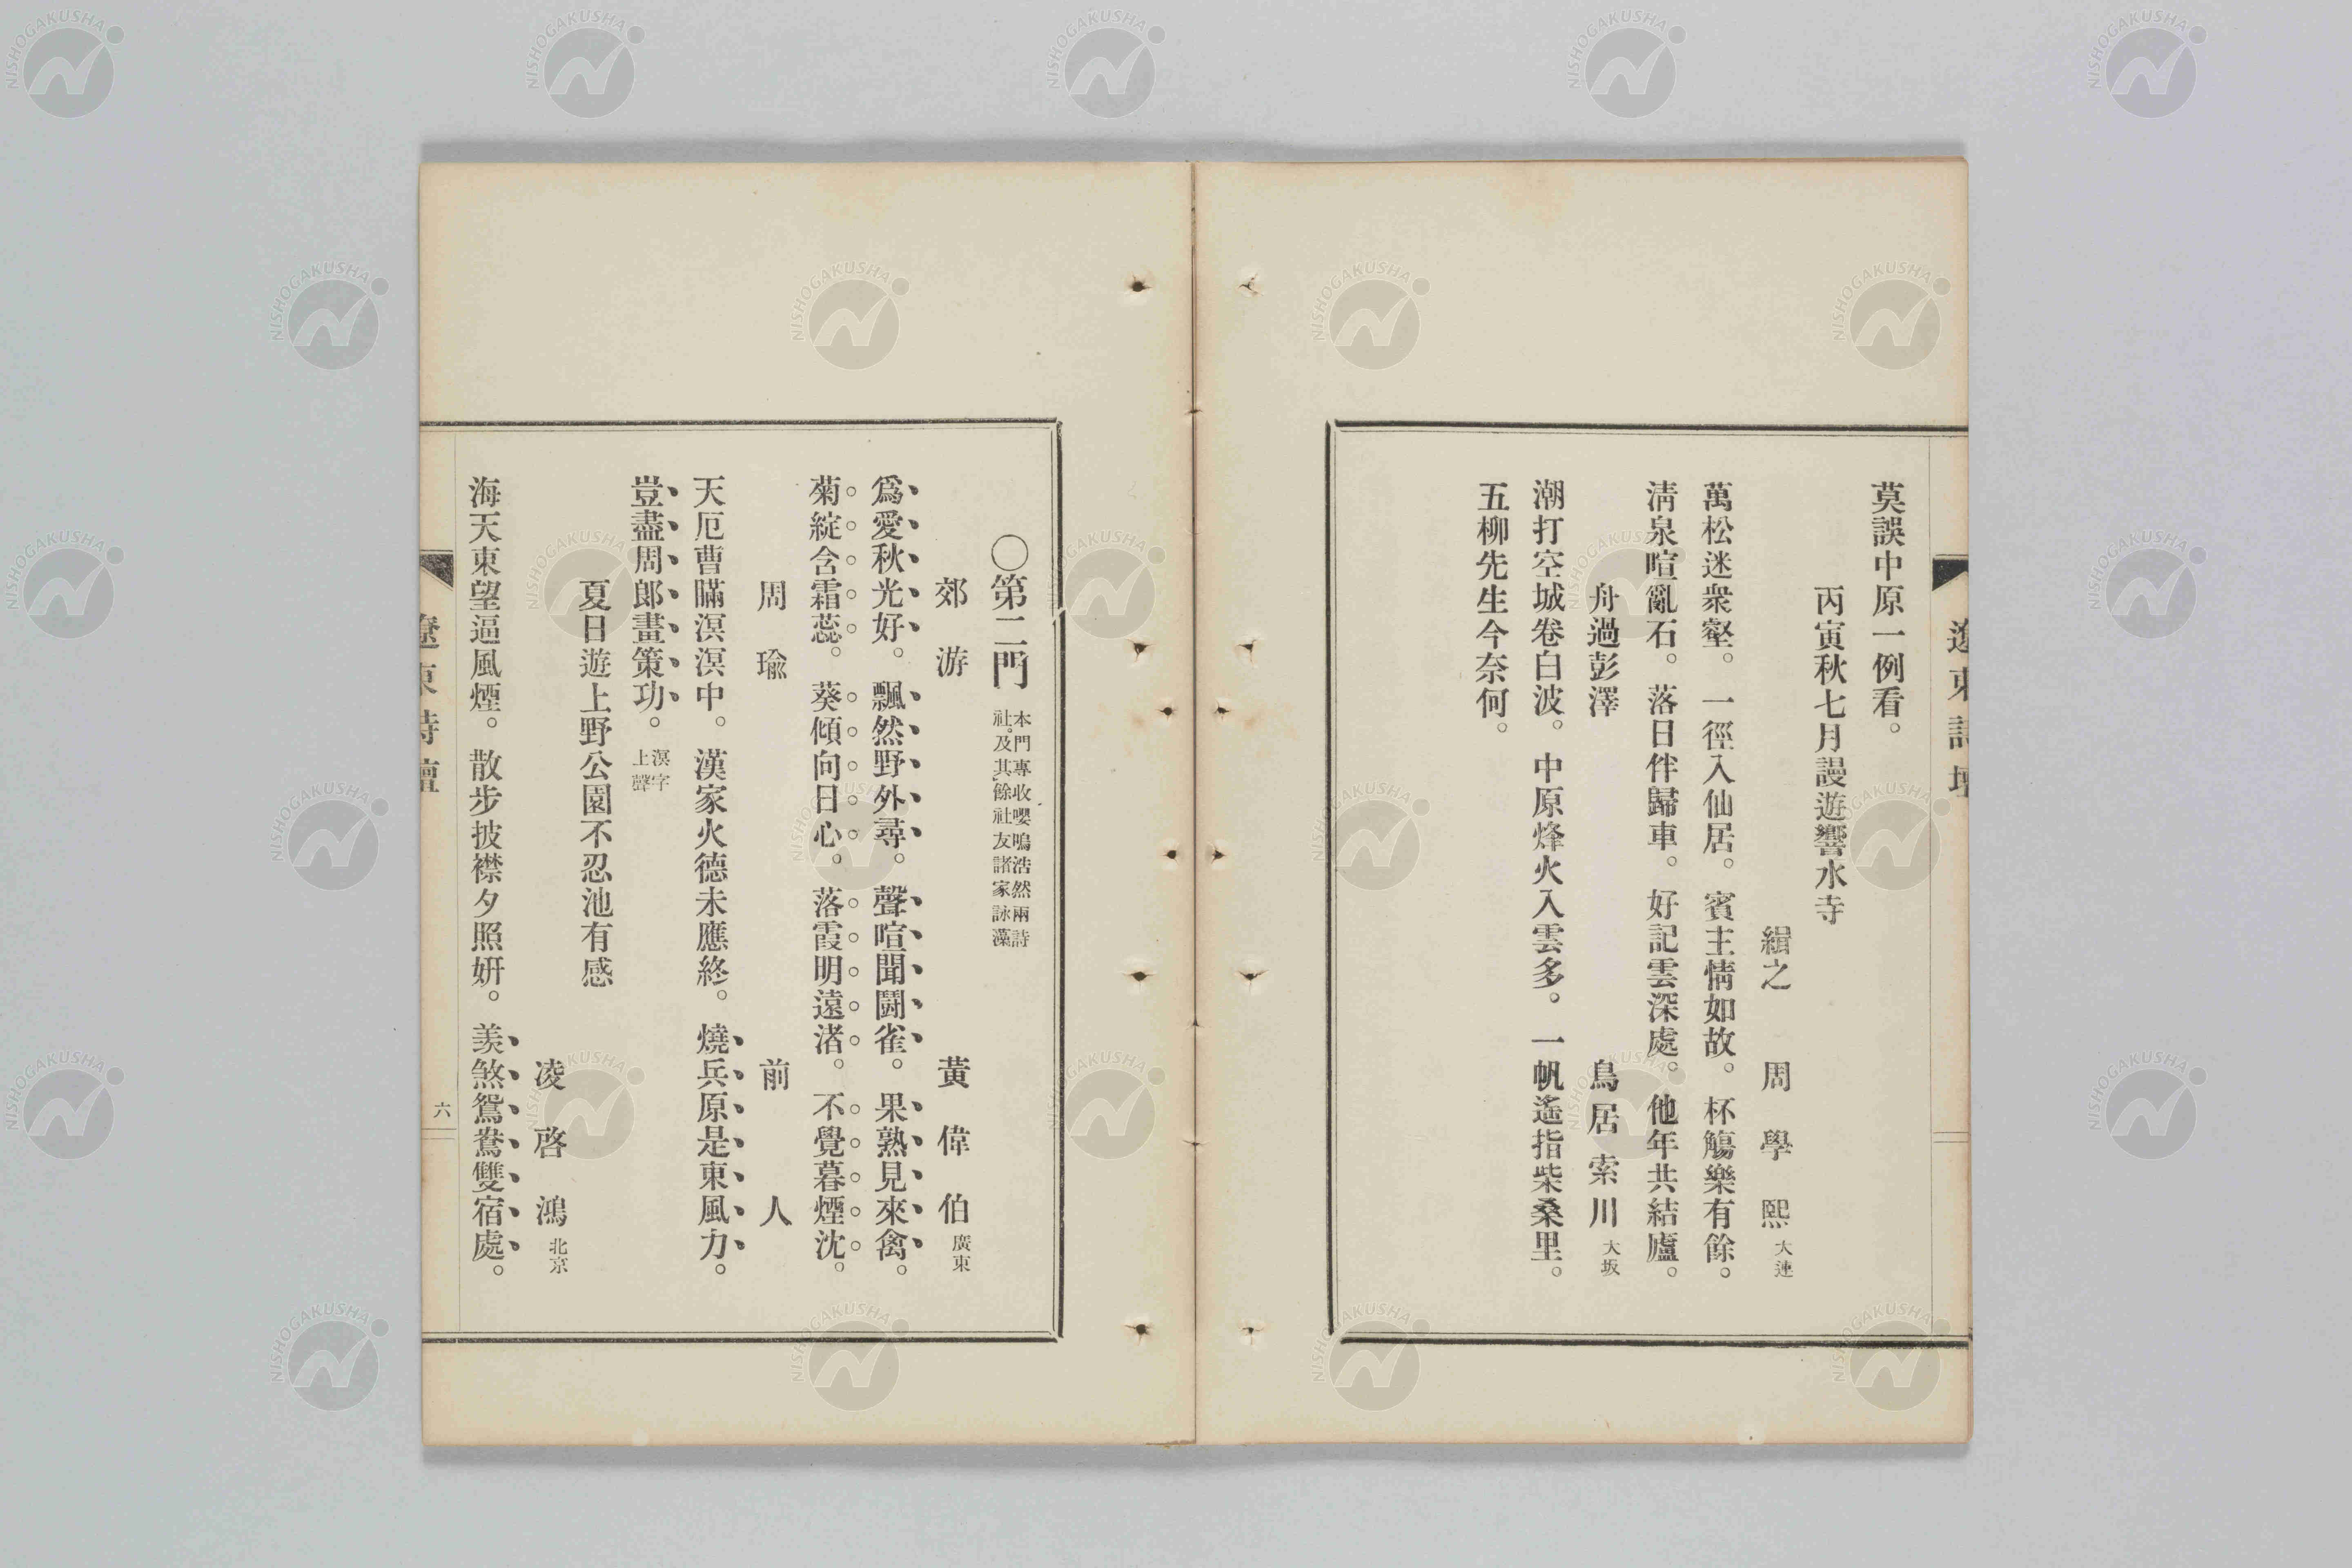 遼東詩壇
莫誤中原一例看。
丙寅秋七月謾遊響水寺
緝之 周學熙 大連
萬松迷衆壑。一徑入仙居。賓主情如故。杯觴樂有餘。
淸泉喧亂石。落日伴歸車。好記雲深處。他年共結廬。
舟過彭澤 鳥居索川 大坂
潮打空城卷白波。中原烽火入雲多。一帆遙指柴桑里。
五柳先生今奈何。
〇第二門 本門專收嚶鳴浩然兩詩
社。及其餘社友諸家詠藻
郊游 黃偉伯 廣東
爲愛秋光好。飄然野外尋。聲喧聞鬪雀。果熟見來禽。
菊綻含霜蕊。葵傾向日心。落霞明遠渚。不覺暮煙沈。
周瑜 前人
天厄曹瞞溟溟中。漢家火德未應終。燒兵原是東風力。
豈盡周郞畫策功。溟字
上聲
夏日遊上野公園不忍池有感
凌啓鴻 北京
海天東望逼風煙。散步披襟夕照姸。羨煞鴛鴦雙宿處。
遼東詩壇
六
NISHOGAKUSHA